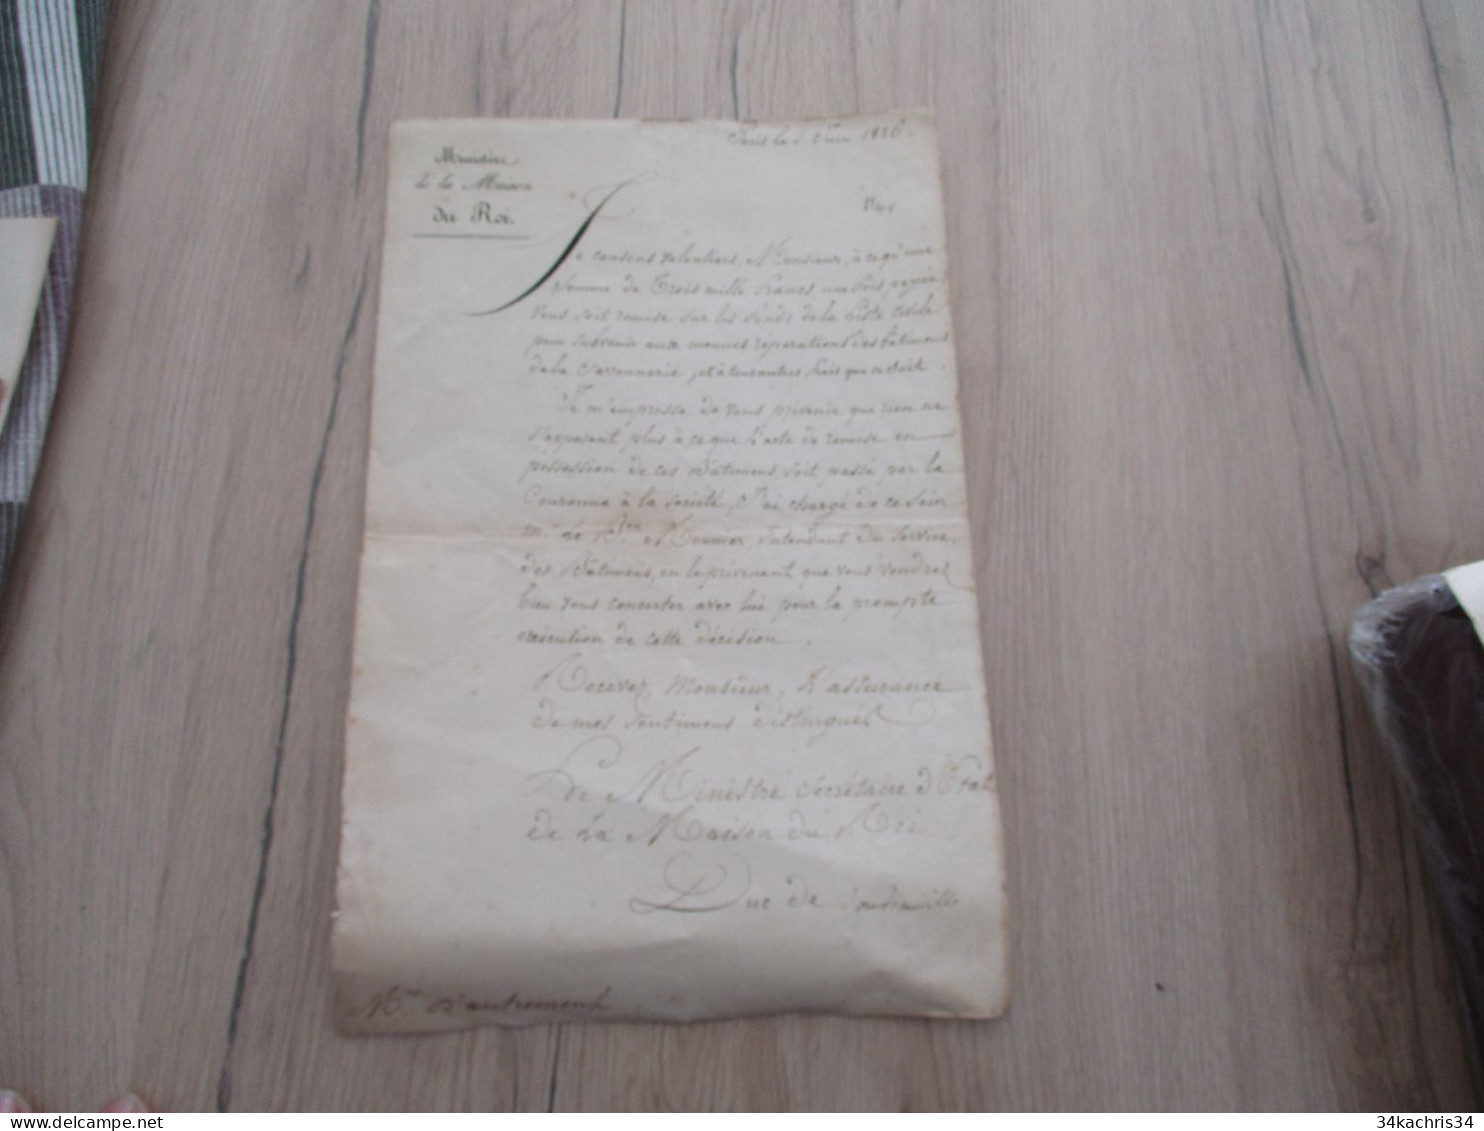 Paris le Juin 1826
Ministère
de la Maison
du Roi.
Je consens volontiers, Monsieur, à ce qu'une
somme de Trois mille francs, une fois payée,
vous soit remise sur les fonds de la Liste civile
pour subvenir aux menues reparations des bâtimens
de la Savonnerie, et à tous autres frais que ce soit.
Je m'empresse de vous prévenir que rien ne
s'opposant plus à ce que l'acte de remise en
possession de ces Bâtimens soit passé par la
Couronne à la société, J'ai chargé de ce soin
Mr. Le Bon Mounier, Intendant du Service
des Bâtimens, en le prévenant que vous voudrez
bien vous concerter avec lui pour la prompte
exécution de cette décision.
Recevez, Monsieur, l'assurance
de mes sentimens distingués
Le Ministre Secrétaire d'Etat
de la Maison du Roi
Duc de Doudeauville
Mr. D'autremont
34kachris34